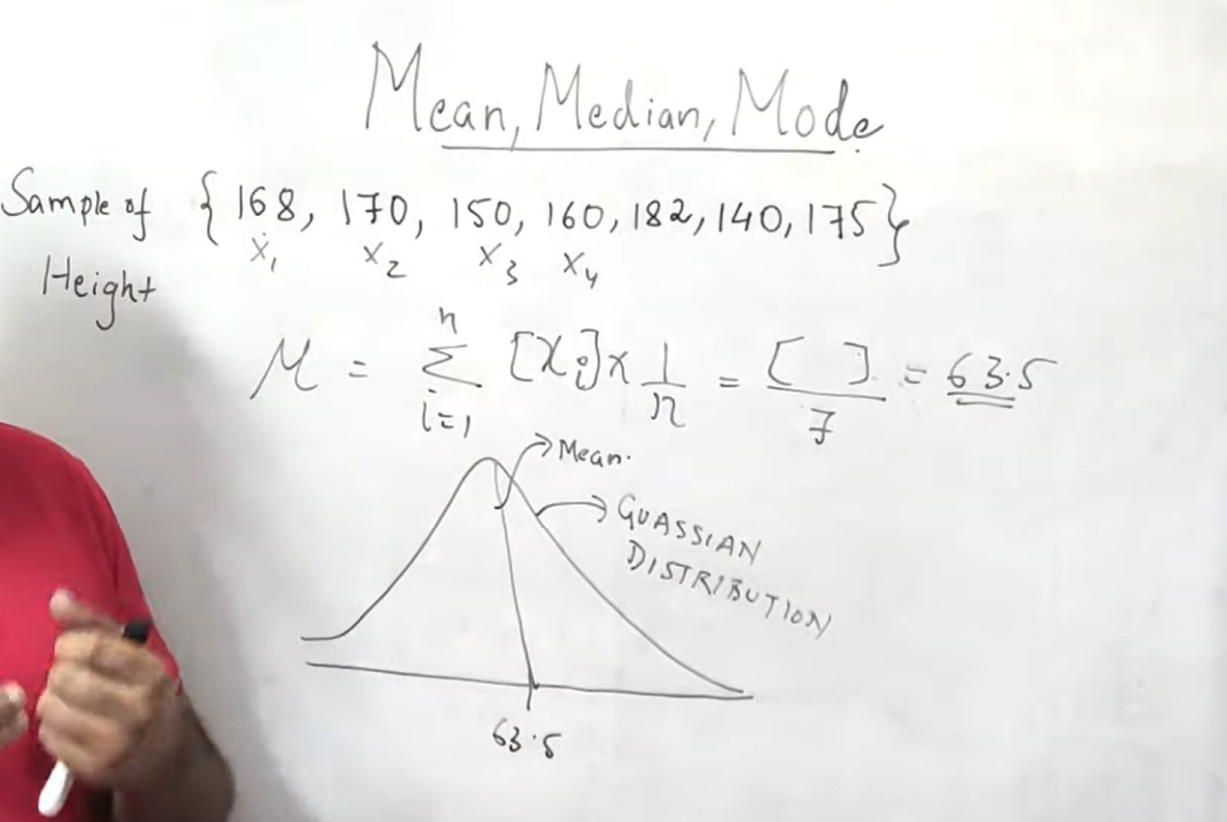 Mean, Median, Mode
Sample of { 168, 170, 150, 160, 182, 140, 175 }
x₁ x₂ x₃ x₄
Height
M = Σ [xi] x 1/n = [ ]/7 = 63.5
n
i=1
Mean.
GUASSIAN
DISTRIBUTION
63.5